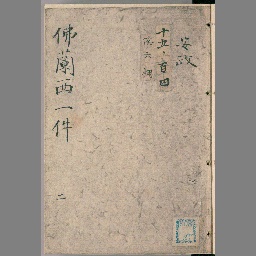 安政
十五ノ百四
佛蘭西一件
二